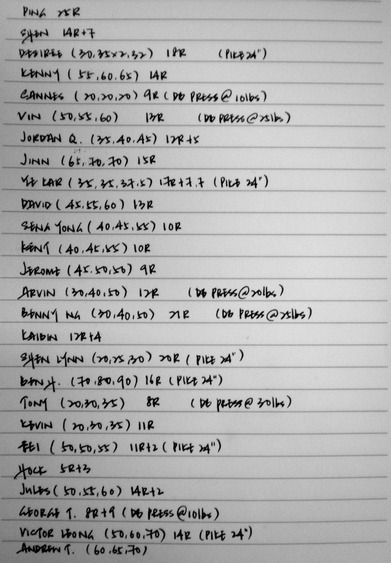 PING 25R
SHEN 14R+7
DESIREE (30,35x2,32) 18R (PIKE 24")
KENNY (55,60,65) 14R
CANNES (20,20,20) 9R (DB PRESS@10lbs)
VIN (50,55,60) 13R (DB PRESS@25lbs)
JORDAN Q. (35,40,45) 12R+5
JINN (65,70,70) 15R
YE KAR (35,35,37.5) 17R+7,7 (PIKE 24")
DAVID (45,55,60) 13R
SENG YONG (40,45,55) 10R
KENT (40,45,55) 10R
JEROME (45,50,50) 9R
ARVIN (30,40,50) 12R (DB PRESS@20lbs)
BENNY NG (30,40,50) 21R (DB PRESS@25lbs)
KAIBIN 12R+4
SHEN LYNN (20,25,30) 20R (PIKE 24")
BEN H. (70,80,90) 16R (PIKE 24")
TONY (20,30,35) 8R (DB PRESS@30lbs)
KEVIN (20,30,35) 11R
EEI (50,50,55) 11R+2 (PIKE 24")
HOCK 5R+3
JULES (50,55,60) 14R+2
GEORGE T. 8R+9 (DB PRESS@10lbs)
VICTOR LEONG (50,60,70) 14R (PIKE 24")
ANDREW T. (60,65,70)